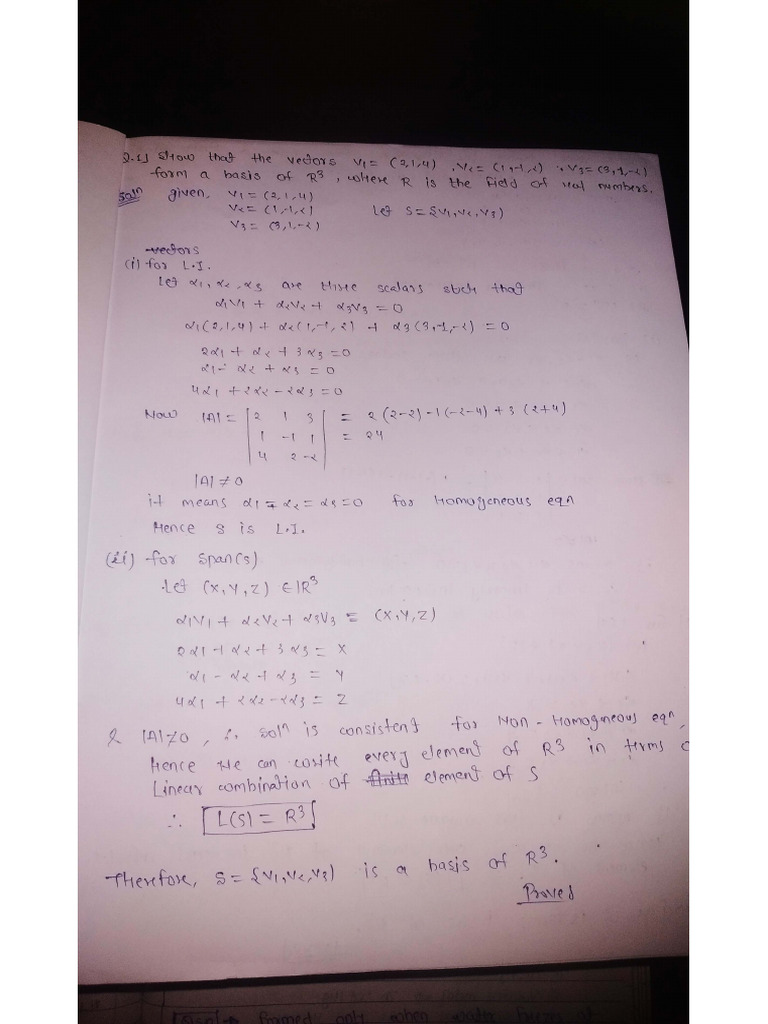 Q.1] Show that the vectors V1 = (2,1,4) , V2 = (1,-1,2) , V3 = (3,1,-2)
form a basis of R³, where R is the field of real numbers.
Solⁿ given, V1 = (2,1,4)
V2 = (1,-1,2) Let S = {V1,V2,V3}
V3 = (3,1,-2)
vectors
(i) for L.I.
Let α1, α2, α3 are three scalars such that
α1V1 + α2V2 + α3V3 = 0
α1(2,1,4) + α2(1,-1,2) + α3(3,-1,-2) = 0
2α1 + α2 + 3α3 = 0
α1 - α2 + α3 = 0
4α1 + 2α2 - 2α3 = 0
Now |A| = | 2 1 3 | = 2(2-2) - 1(-2-4) + 3(2+4)
| 1 -1 1 | = 24
| 4 2 -2 |
|A| ≠ 0
it means α1 = α2 = α3 = 0 for Homogeneous eqn
Hence S is L.I.
(ii) for span(s)
Let (X,Y,Z) ∈ R³
α1V1 + α2V2 + α3V3 = (X,Y,Z)
2α1 + α2 + 3α3 = X
α1 - α2 + α3 = Y
4α1 + 2α2 - 2α3 = Z
& |A| ≠ 0, ∴ solⁿ is consistent for Non-Homogeneous eqn,
Hence we can write every element of R³ in terms
Linear combination of finite element of S
∴ L(S) = R³
Therefore, S = {V1,V2,V3} is a basis of R³.
Proved